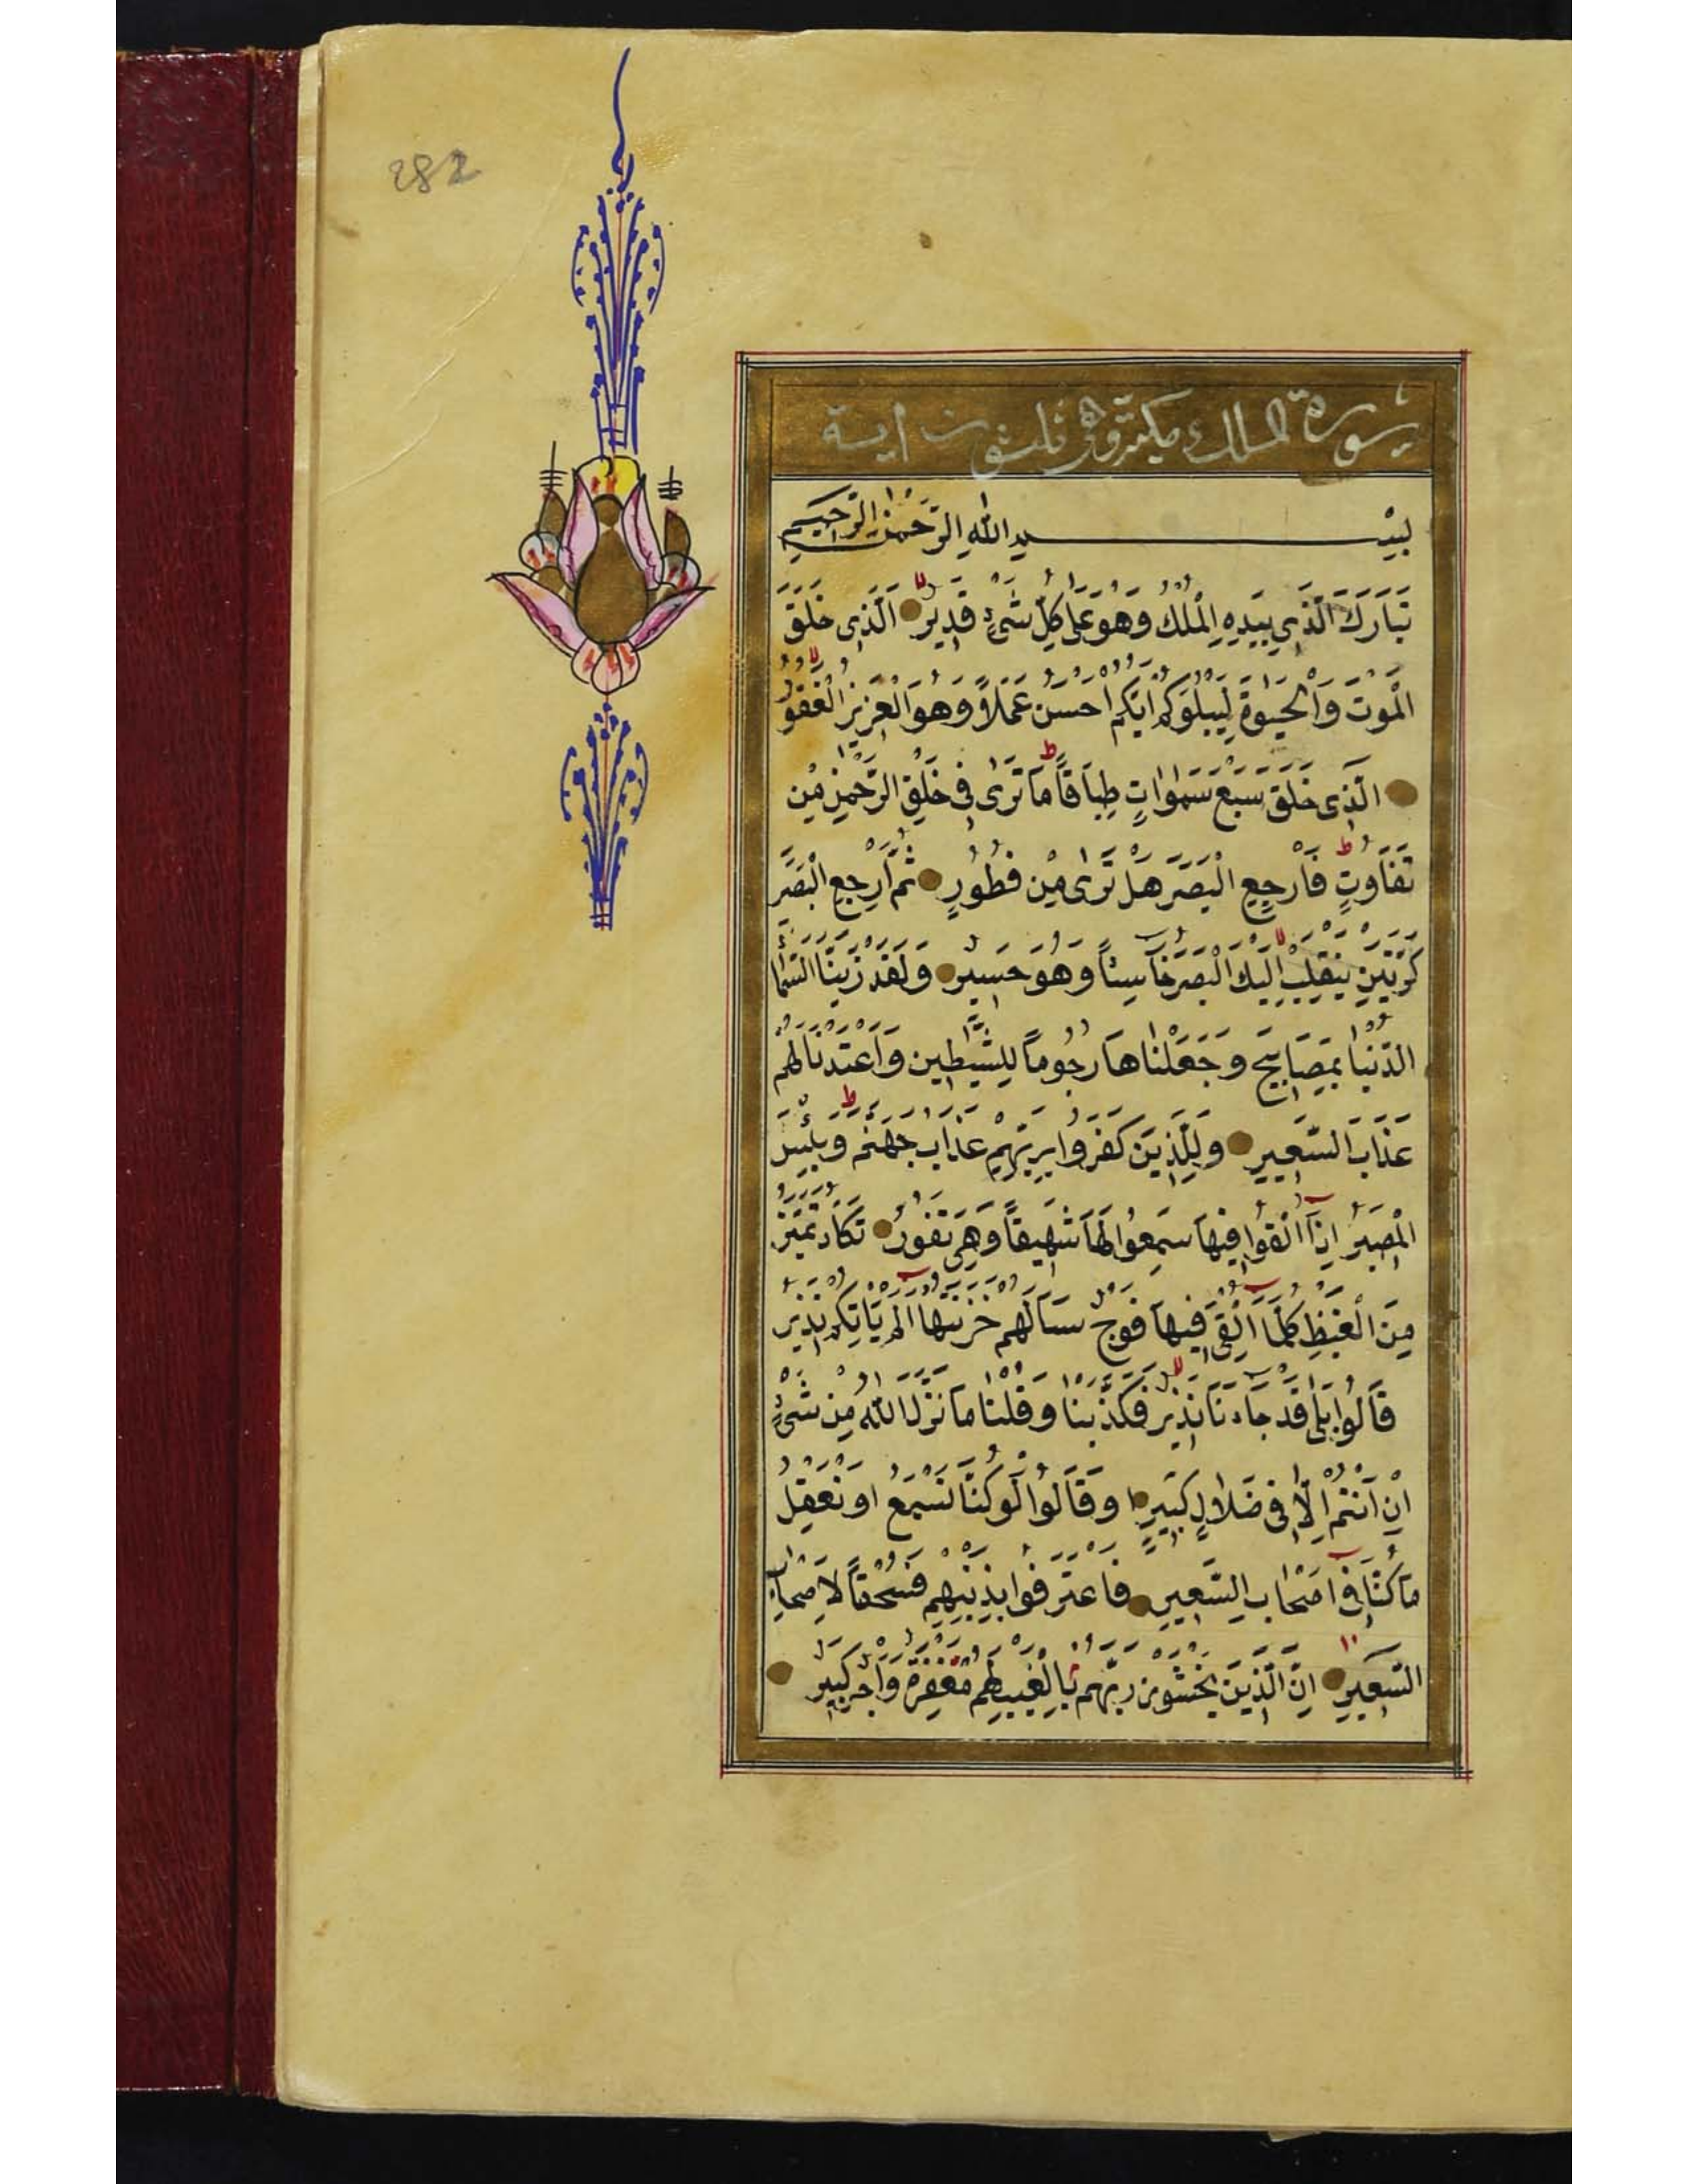 282
سورة الملك مكية وهى ثلثون اية
بسم الله الرحمن الرحيم
تَبَارَكَ الَّذِي بِيَدِهِ الْمُلْكُ وَهُوَ عَلٰى كُلِّ شَىْءٍ قَدِيرٌ الَّذِى خَلَقَ
الْمَوْتَ وَالْحَيٰوةَ لِيَبْلُوَكُمْ اَيُّكُمْ اَحْسَنُ عَمَلاً وَهُوَ الْعَزِيزُ الْغَفُورُ
الَّذِى خَلَقَ سَبْعَ سَمٰوَاتٍ طِبَاقاً مَا تَرٰى فِى خَلْقِ الرَّحْمٰنِ مِنْ
تَفَاوُتٍ فَارْجِعِ الْبَصَرَ هَلْ تَرٰى مِنْ فُطُورٍ ثُمَّ ارْجِعِ الْبَصَرَ
كَرَّتَيْنِ يَنْقَلِبْ اِلَيْكَ الْبَصَرُ خَاسِئاً وَهُوَ حَسِيرٌ وَلَقَدْ زَيَّنَّا السَّمَا
الدُّنْيَا بِمَصَابِيحَ وَجَعَلْنَاهَا رُجُوماً لِلشَّيَاطِينِ وَاَعْتَدْنَا لَهُمْ
عَذَابَ السَّعِيرِ وَلِلَّذِينَ كَفَرُوا بِرَبِّهِمْ عَذَابُ جَهَنَّمَ وَبِئْسَ
الْمَصِيرُ اِذَا اُلْقُوا فِيهَا سَمِعُوا لَهَا شَهِيقاً وَهِىَ تَفُورُ تَكَادُ تَمَيَّزُ
مِنَ الْغَيْظِ كُلَّمَا اُلْقِىَ فِيهَا فَوْجٌ سَاَلَهُمْ خَزَنَتُهَا اَلَمْ يَاْتِكُمْ نَذِيرٌ
قَالُوا بَلٰى قَدْ جَاءَنَا نَذِيرٌ فَكَذَّبْنَا وَقُلْنَا مَا نَزَّلَ اللّٰهُ مِنْ شَىْءٍ
اِنْ اَنْتُمْ اِلَّا فِى ضَلَالٍ كَبِيرٍ وَقَالُوا لَوْ كُنَّا نَسْمَعُ اَوْ نَعْقِلُ
مَا كُنَّا فِى اَصْحَابِ السَّعِيرِ فَاعْتَرَفُوا بِذَنْبِهِمْ فَسُحْقاً لِاَصْحَابِ
السَّعِيرِ اِنَّ الَّذِينَ يَخْشَوْنَ رَبَّهُمْ بِالْغَيْبِ لَهُمْ مَغْفِرَةٌ وَاَجْرٌ كَبِيرٌ